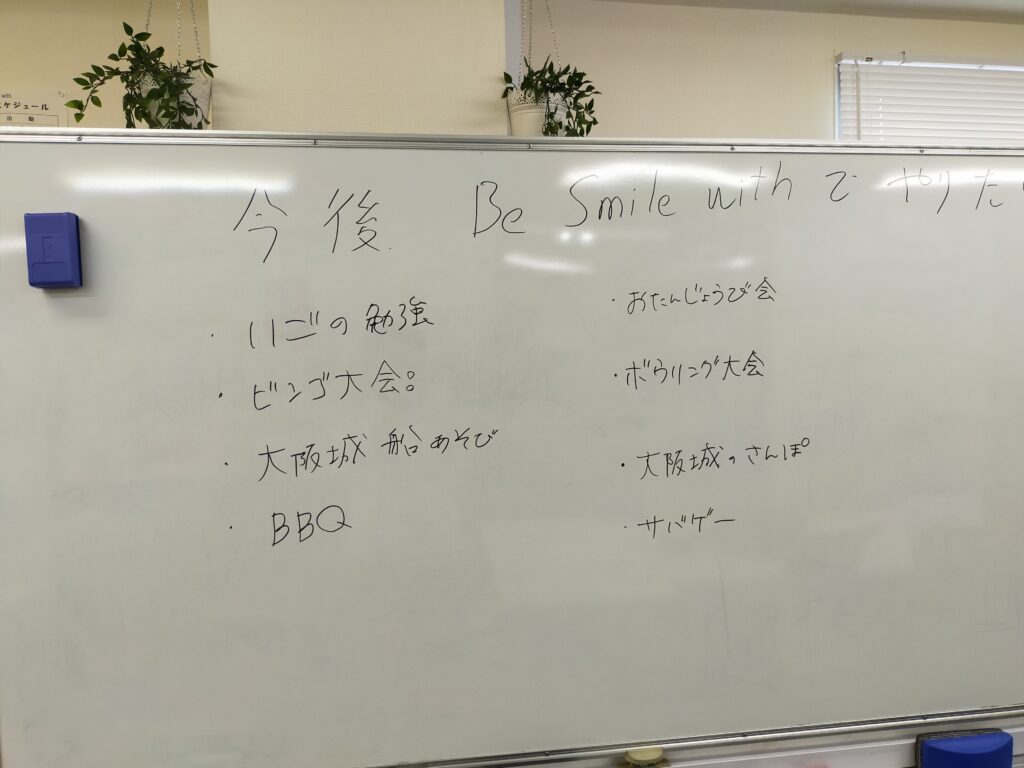 with
スケジュール
出 勤
今後 Be Smile with で やりた
・いごの勉強
・ビンゴ大会
・大阪城 船あそび
・BBQ
・おたんじょうび会
・ボウリング大会
・大阪城のさんぽ
・サバゲー